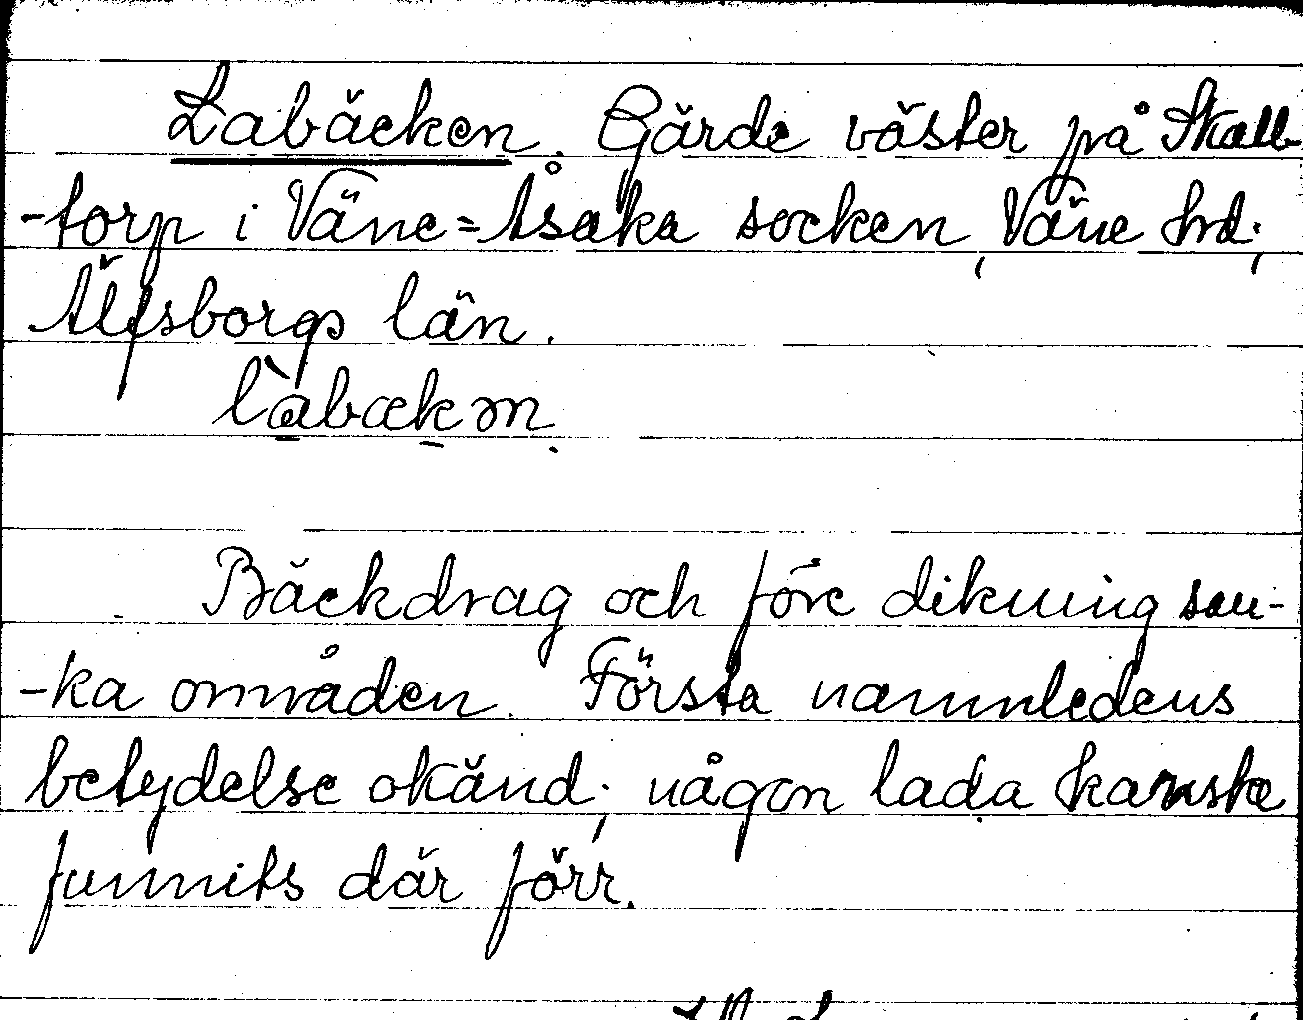 Labäcken. Gärde väster på Skall-
-torp i Väne=Åsaka socken, Väne hd;
Älfsborgs län.
làbækən.
Bäckdrag och före dikning san-
-ka områden. Första namnledens
betydelse okänd; någon lada kanske
funnits där förr.